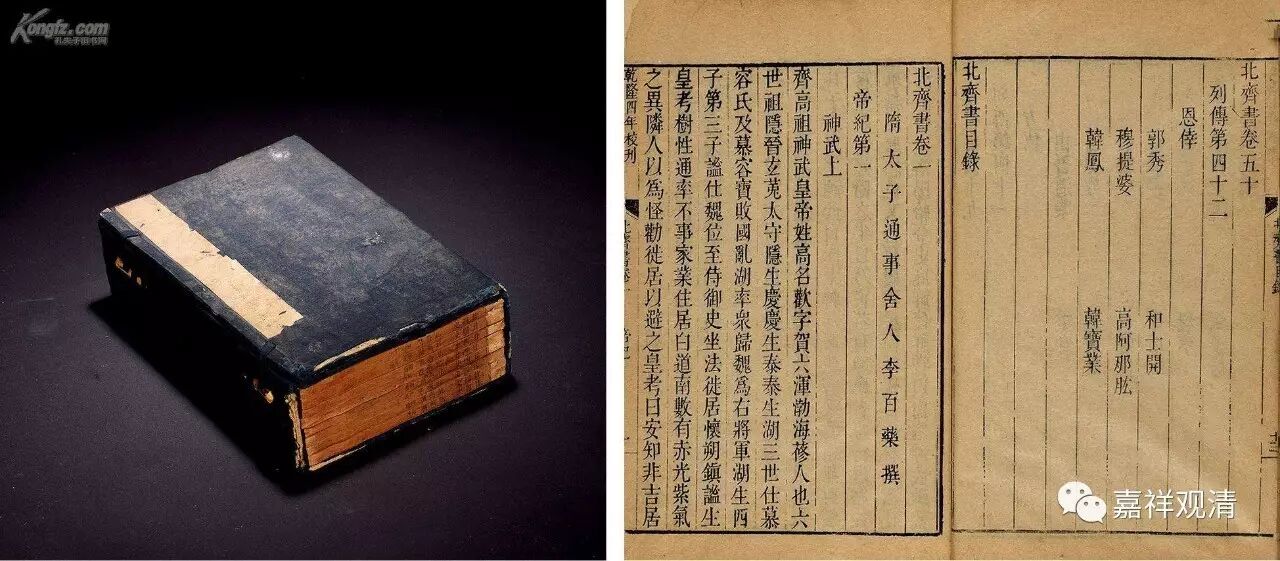 Kongfz.com
孔夫子旧书网
北齊書卷五十
列傳第四十二
恩倖
郭秀 和士開
穆提婆 高阿那肱
韓鳳 韓寶業
北齊書目錄
北齊書卷一
隋太子通事舍人李百藥撰
帝紀第一
神武上
齊高祖神武皇帝姓高名歡字賀六渾渤海蓨人也六
世祖隱晉玄菟太守隱生慶慶生泰泰生湖三世仕慕
容氏及慕容寶敗國亂湖率衆歸魏爲右將軍湖生四
子第三子謐仕魏位至侍御史坐法徙居懷朔鎮謐生
皇考樹性通率不事家業住居白道南數有赤光紫氣
之異隣人以爲怪勸徙居以避之皇考曰安知非吉居
乾隆四年校刊
北齊書卷一 帝紀
嘉祥观清